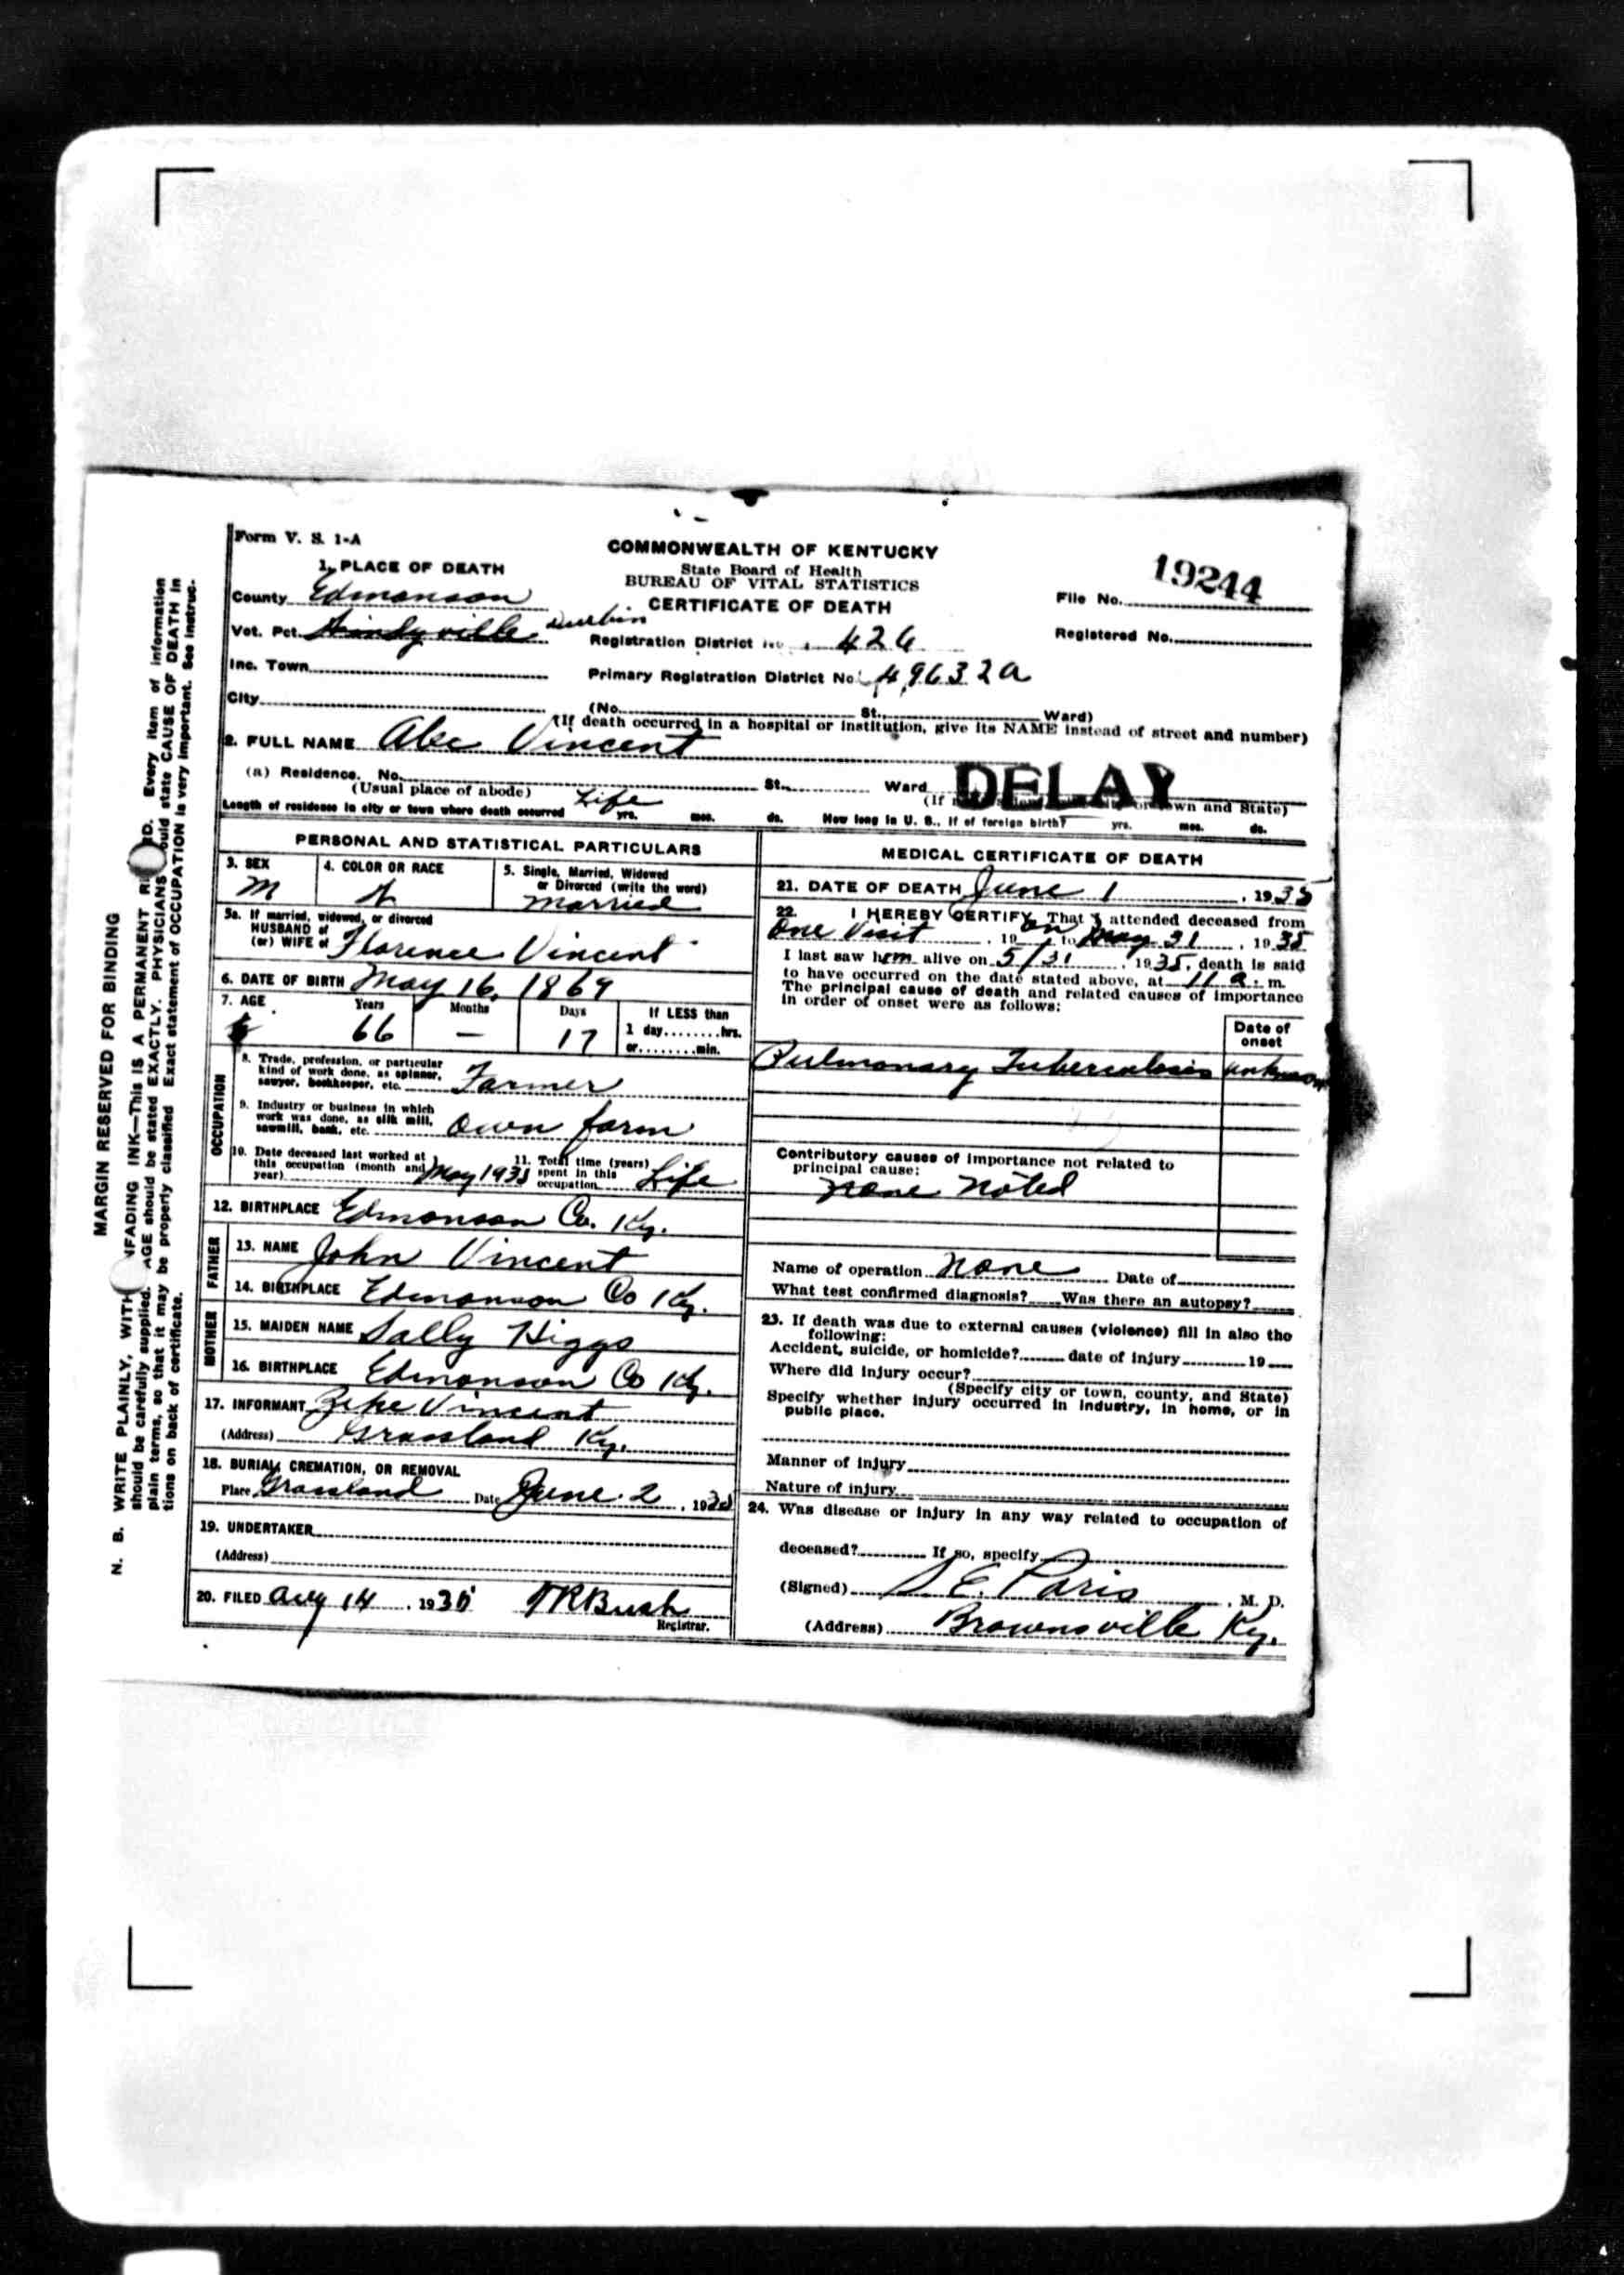 Form V. S. 1-A
COMMONWEALTH OF KENTUCKY
State Board of Health
BUREAU OF VITAL STATISTICS
CERTIFICATE OF DEATH
File No. 19244
Registered No.
1. PLACE OF DEATH
County Edmonson
Vot. Pct. Windyville Durbin
Registration District No. 426
Inc. Town
Primary Registration District No. 49632a
City
(No. St., Ward)
(If death occurred in a hospital or institution, give its NAME instead of street and number)
2. FULL NAME Abe Vincent
(a) Residence. No. St., Ward
(Usual place of abode)
(If own and State)
DELAY
Length of residence in city or town where death occurred Life yrs. mos. ds. How long in U. S., if of foreign birth? yrs. mos. ds.
PERSONAL AND STATISTICAL PARTICULARS
3. SEX
M
4. COLOR OR RACE
5. Single, Married, Widowed
or Divorced (write the word)
Married
5a. If married, widowed, or divorced
HUSBAND of
(or) WIFE of Florence Vincent
6. DATE OF BIRTH May 16, 1869
7. AGE Years Months Days If LESS than
1 day........hrs.
or........min.
66 — 17
OCCUPATION
8. Trade, profession, or particular
kind of work done, as spinner,
sawyer, bookkeeper, etc. Farmer
9. Industry or business in which
work was done, as silk mill,
sawmill, bank, etc. Own farm
10. Date deceased last worked at
this occupation (month and
year) May 1935
11. Total time (years)
spent in this
occupation Life
12. BIRTHPLACE Edmonson Co. Ky.
FATHER
13. NAME John Vincent
14. BIRTHPLACE Edmonson Co Ky.
MOTHER
15. MAIDEN NAME Sally Higgs
16. BIRTHPLACE Edmonson Co Ky.
17. INFORMANT Zeke Vincent
(Address) Grassland Ky.
18. BURIAL, CREMATION, OR REMOVAL
Place Grassland Date June 2, 1935
19. UNDERTAKER
(Address)
20. FILED Aug 14, 1935 Bush
Registrar.
MEDICAL CERTIFICATE OF DEATH
21. DATE OF DEATH June 1, 1935
22. I HEREBY CERTIFY, That I attended deceased from
One Visit, 19 on to May 31, 1935
I last saw him alive on 5/31, 1935, death is said
to have occurred on the date stated above, at 11 a. m.
The principal cause of death and related causes of importance
in order of onset were as follows:
Date of
onset
Pulmonary Tuberculosis unknown
Contributory causes of importance not related to
principal cause:
None Noted
Name of operation None Date of
What test confirmed diagnosis? Was there an autopsy?
23. If death was due to external causes (violence) fill in also the
following:
Accident, suicide, or homicide? date of injury 19
Where did injury occur?
(Specify city or town, county, and State)
Specify whether injury occurred in industry, in home, or in
public place.
Manner of injury
Nature of injury
24. Was disease or injury in any way related to occupation of
deceased? If so, specify
(Signed) E. Paris, M. D.
(Address) Brownsville Ky.
MARGIN RESERVED FOR BINDING
N. B. WRITE PLAINLY, WITH NFADING INK—THIS IS A PERMANENT R D. Every item of information
should be carefully supplied. AGE should be stated EXACTLY. PHYSICIANS ould state CAUSE OF DEATH in
plain terms, so that it may be properly classified Exact statement of OCCUPATION is very important. See instruc-
tions on back of certificate.